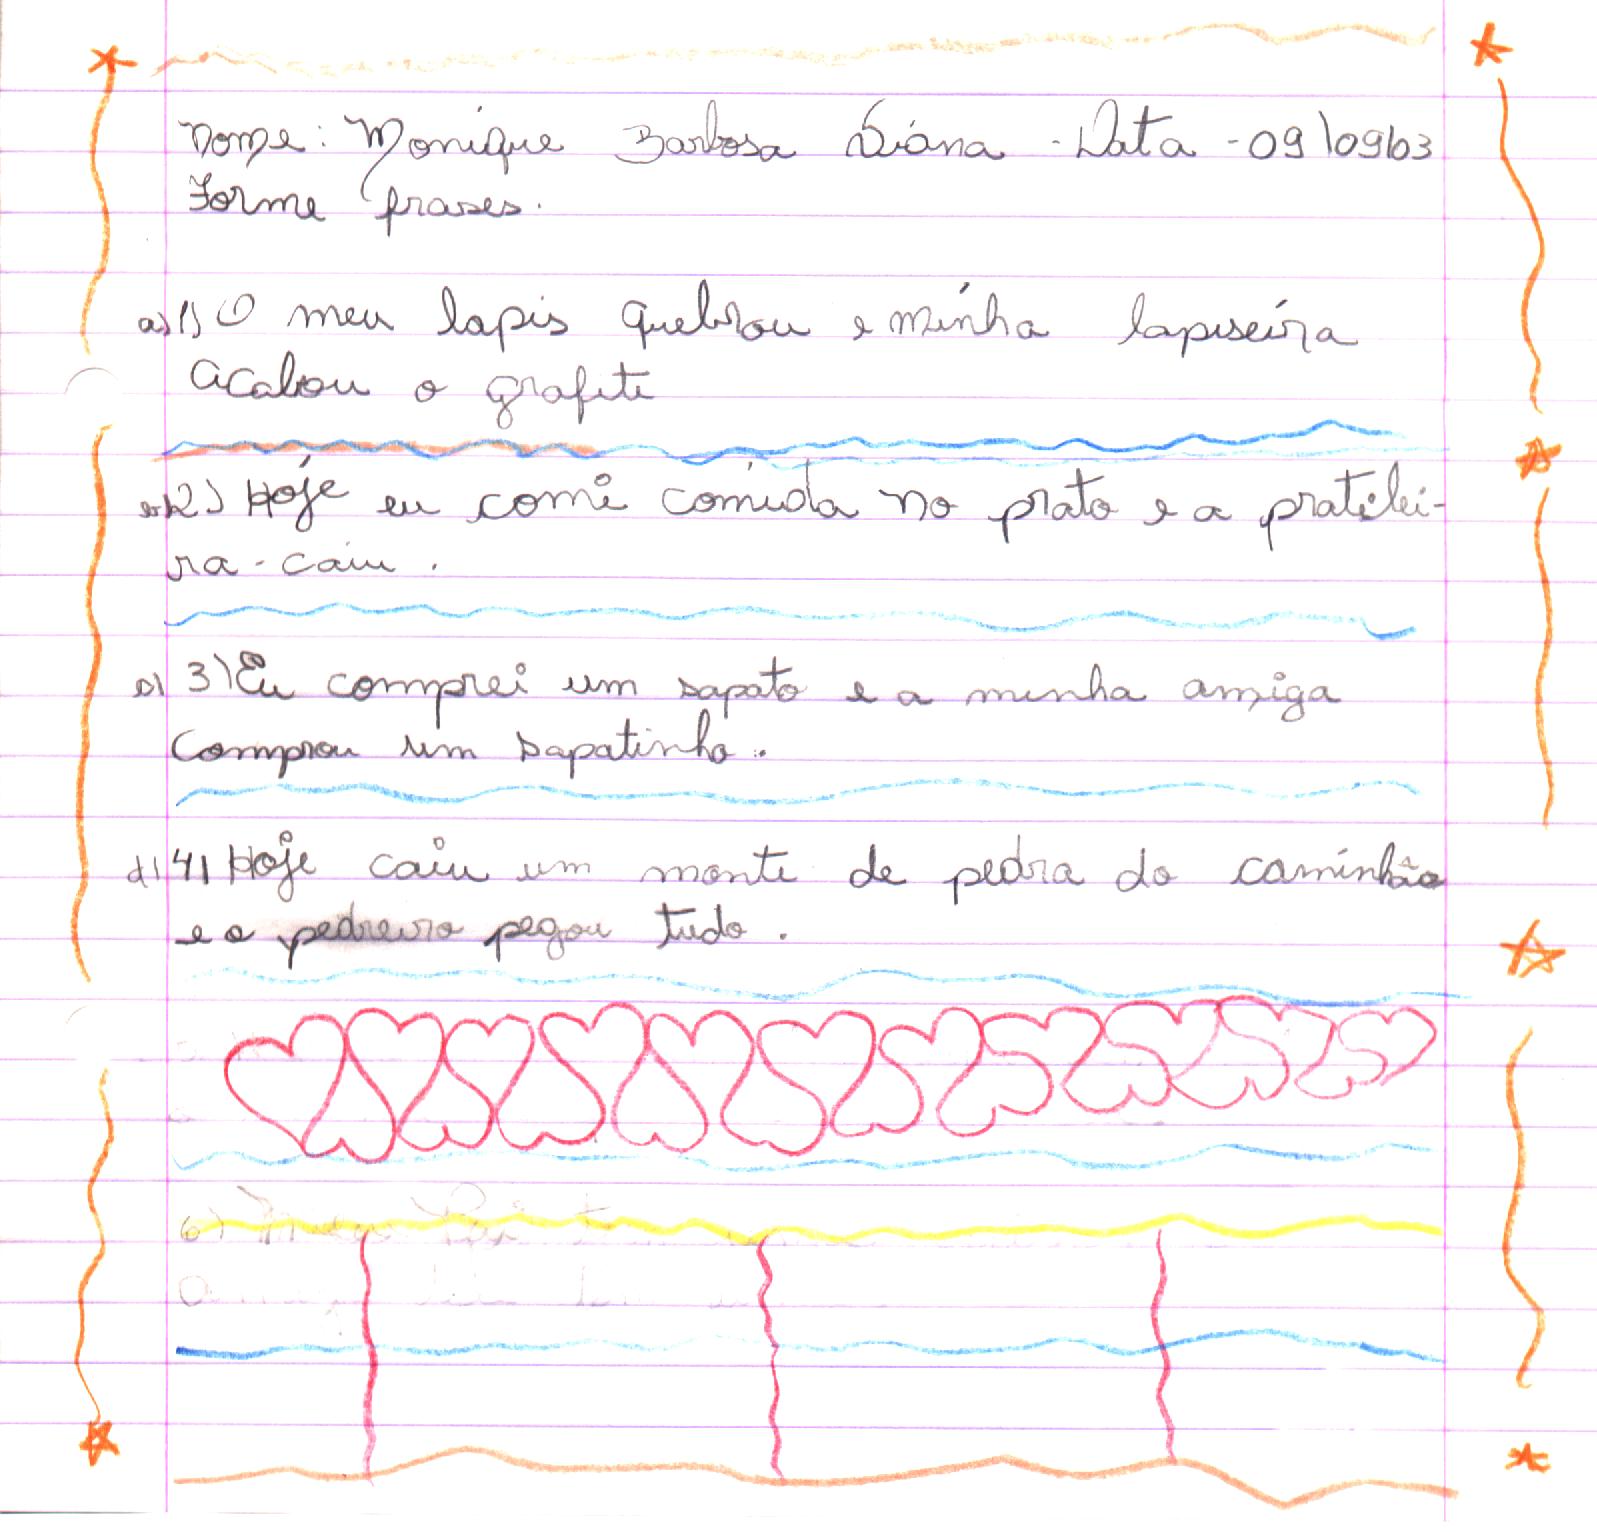 Nome: Monique Barbosa Viana - Data - 09/09/03
Forme frases.
a) 1) O meu lapis quebrou e minha lapiseira
acabou o grafite
b) 2) Hoje eu comi comida no prato e a pratilei-
ra - caiu .
c) 3) Eu comprei um sapato e a minha amiga
comprou um sapatinho .
d) 4) Hoje caiu um monte de pedra do caminhão
e o pedreiro pegou tudo .
6) Meu Pai